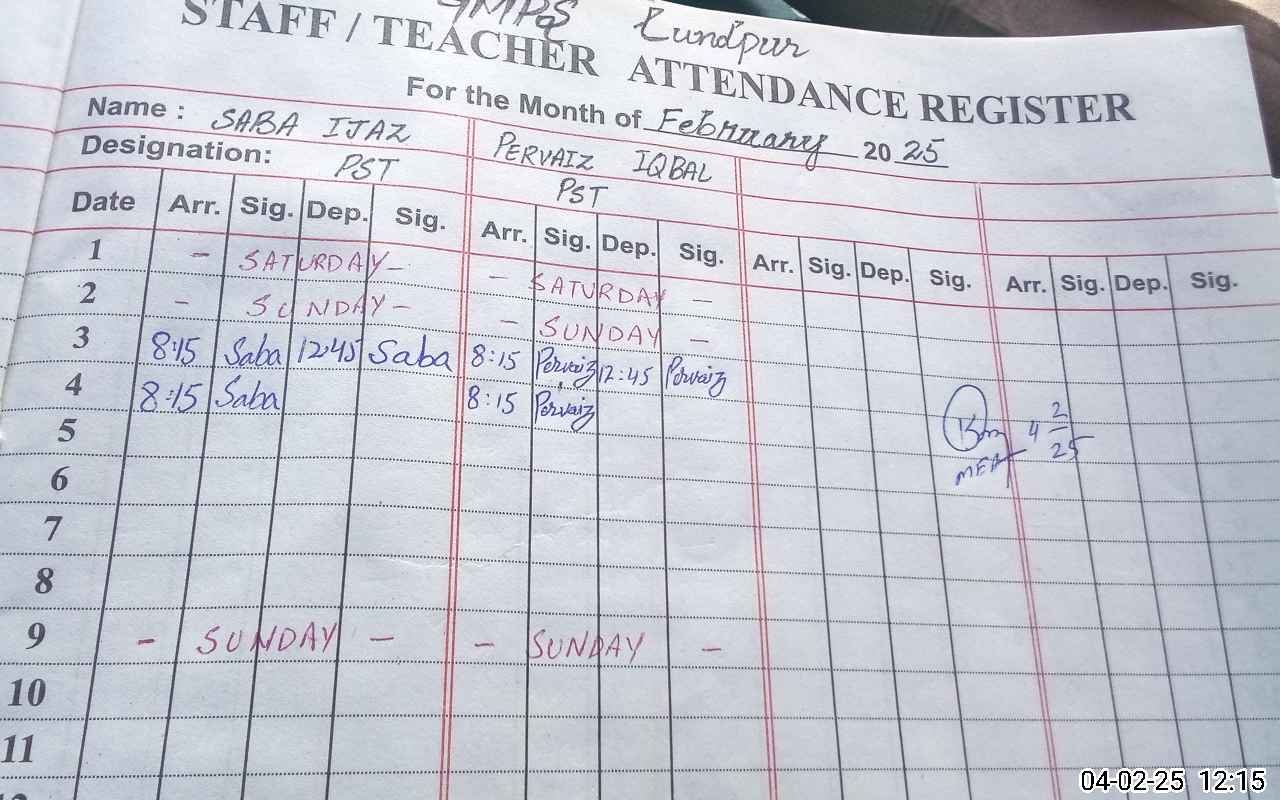 GMPS Lundpur
STAFF / TEACHER ATTENDANCE REGISTER
For the Month of February 2025
Name : SABA IJAZ PERVAIZ IQBAL
Designation: PST PST
Date Arr. Sig. Dep. Sig. Arr. Sig. Dep. Sig. Arr. Sig. Dep. Sig. Arr. Sig. Dep. Sig.
1 - SATURDAY - - SATURDAY -
2 - SUNDAY - - SUNDAY -
3 8:15 Saba 12:45 Saba 8:15 Pervaiz 12:45 Pervaiz
4 8:15 Saba 8:15 Pervaiz
4 2/25
5
MEA
6
7
8
9 - SUNDAY - - SUNDAY -
10
11
04-02-25 12:15